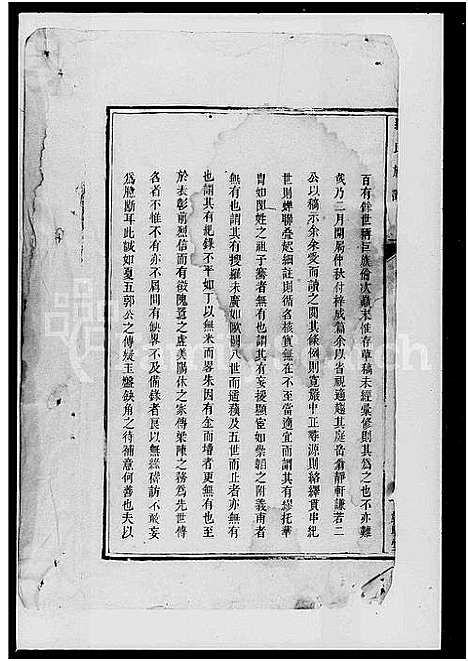 百有餘世稱巨族倫次顛末惟存草稿未經彙修則其為之也不亦難
或乃二月開局仲秋付梓成篇余以省視適趨其庭岳翁靜軒謙若二
公以稿示余余愛而讀之閱其條例則寬嚴中正泝源則絡繹貫串紀
世則蟬聯叠起細註則循名核實無在不至當適宜而謂其有繆托華
胄如閔姓之祖子騫者無有也謂其有妄援顯宦如崇韜之附義甫者
無有也謂其有搜羅未廣如歐闕八世而通穕及五世而止者亦無有
也謂其有紀錄不平如丁以無米而略朱因有金而增者更無有也至
於表彰前烈信而有徵陋置之虛美賜休之家傳梁陳之務為先世傳
名者不惟不有亦不屑間有缺畧不及備錄者良以無經碏訪不敢妄
為臆斷耳此誠如夏五郭公之傳疑玉盤缺角之待補意何善也夫以